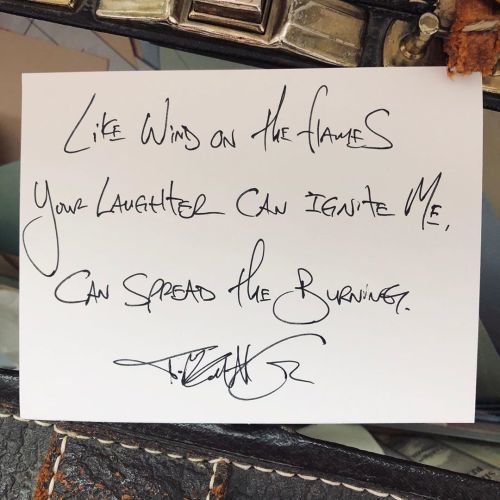 Like Wind on the flames
Your Laughter can ignite me,
Can spread the Burning.